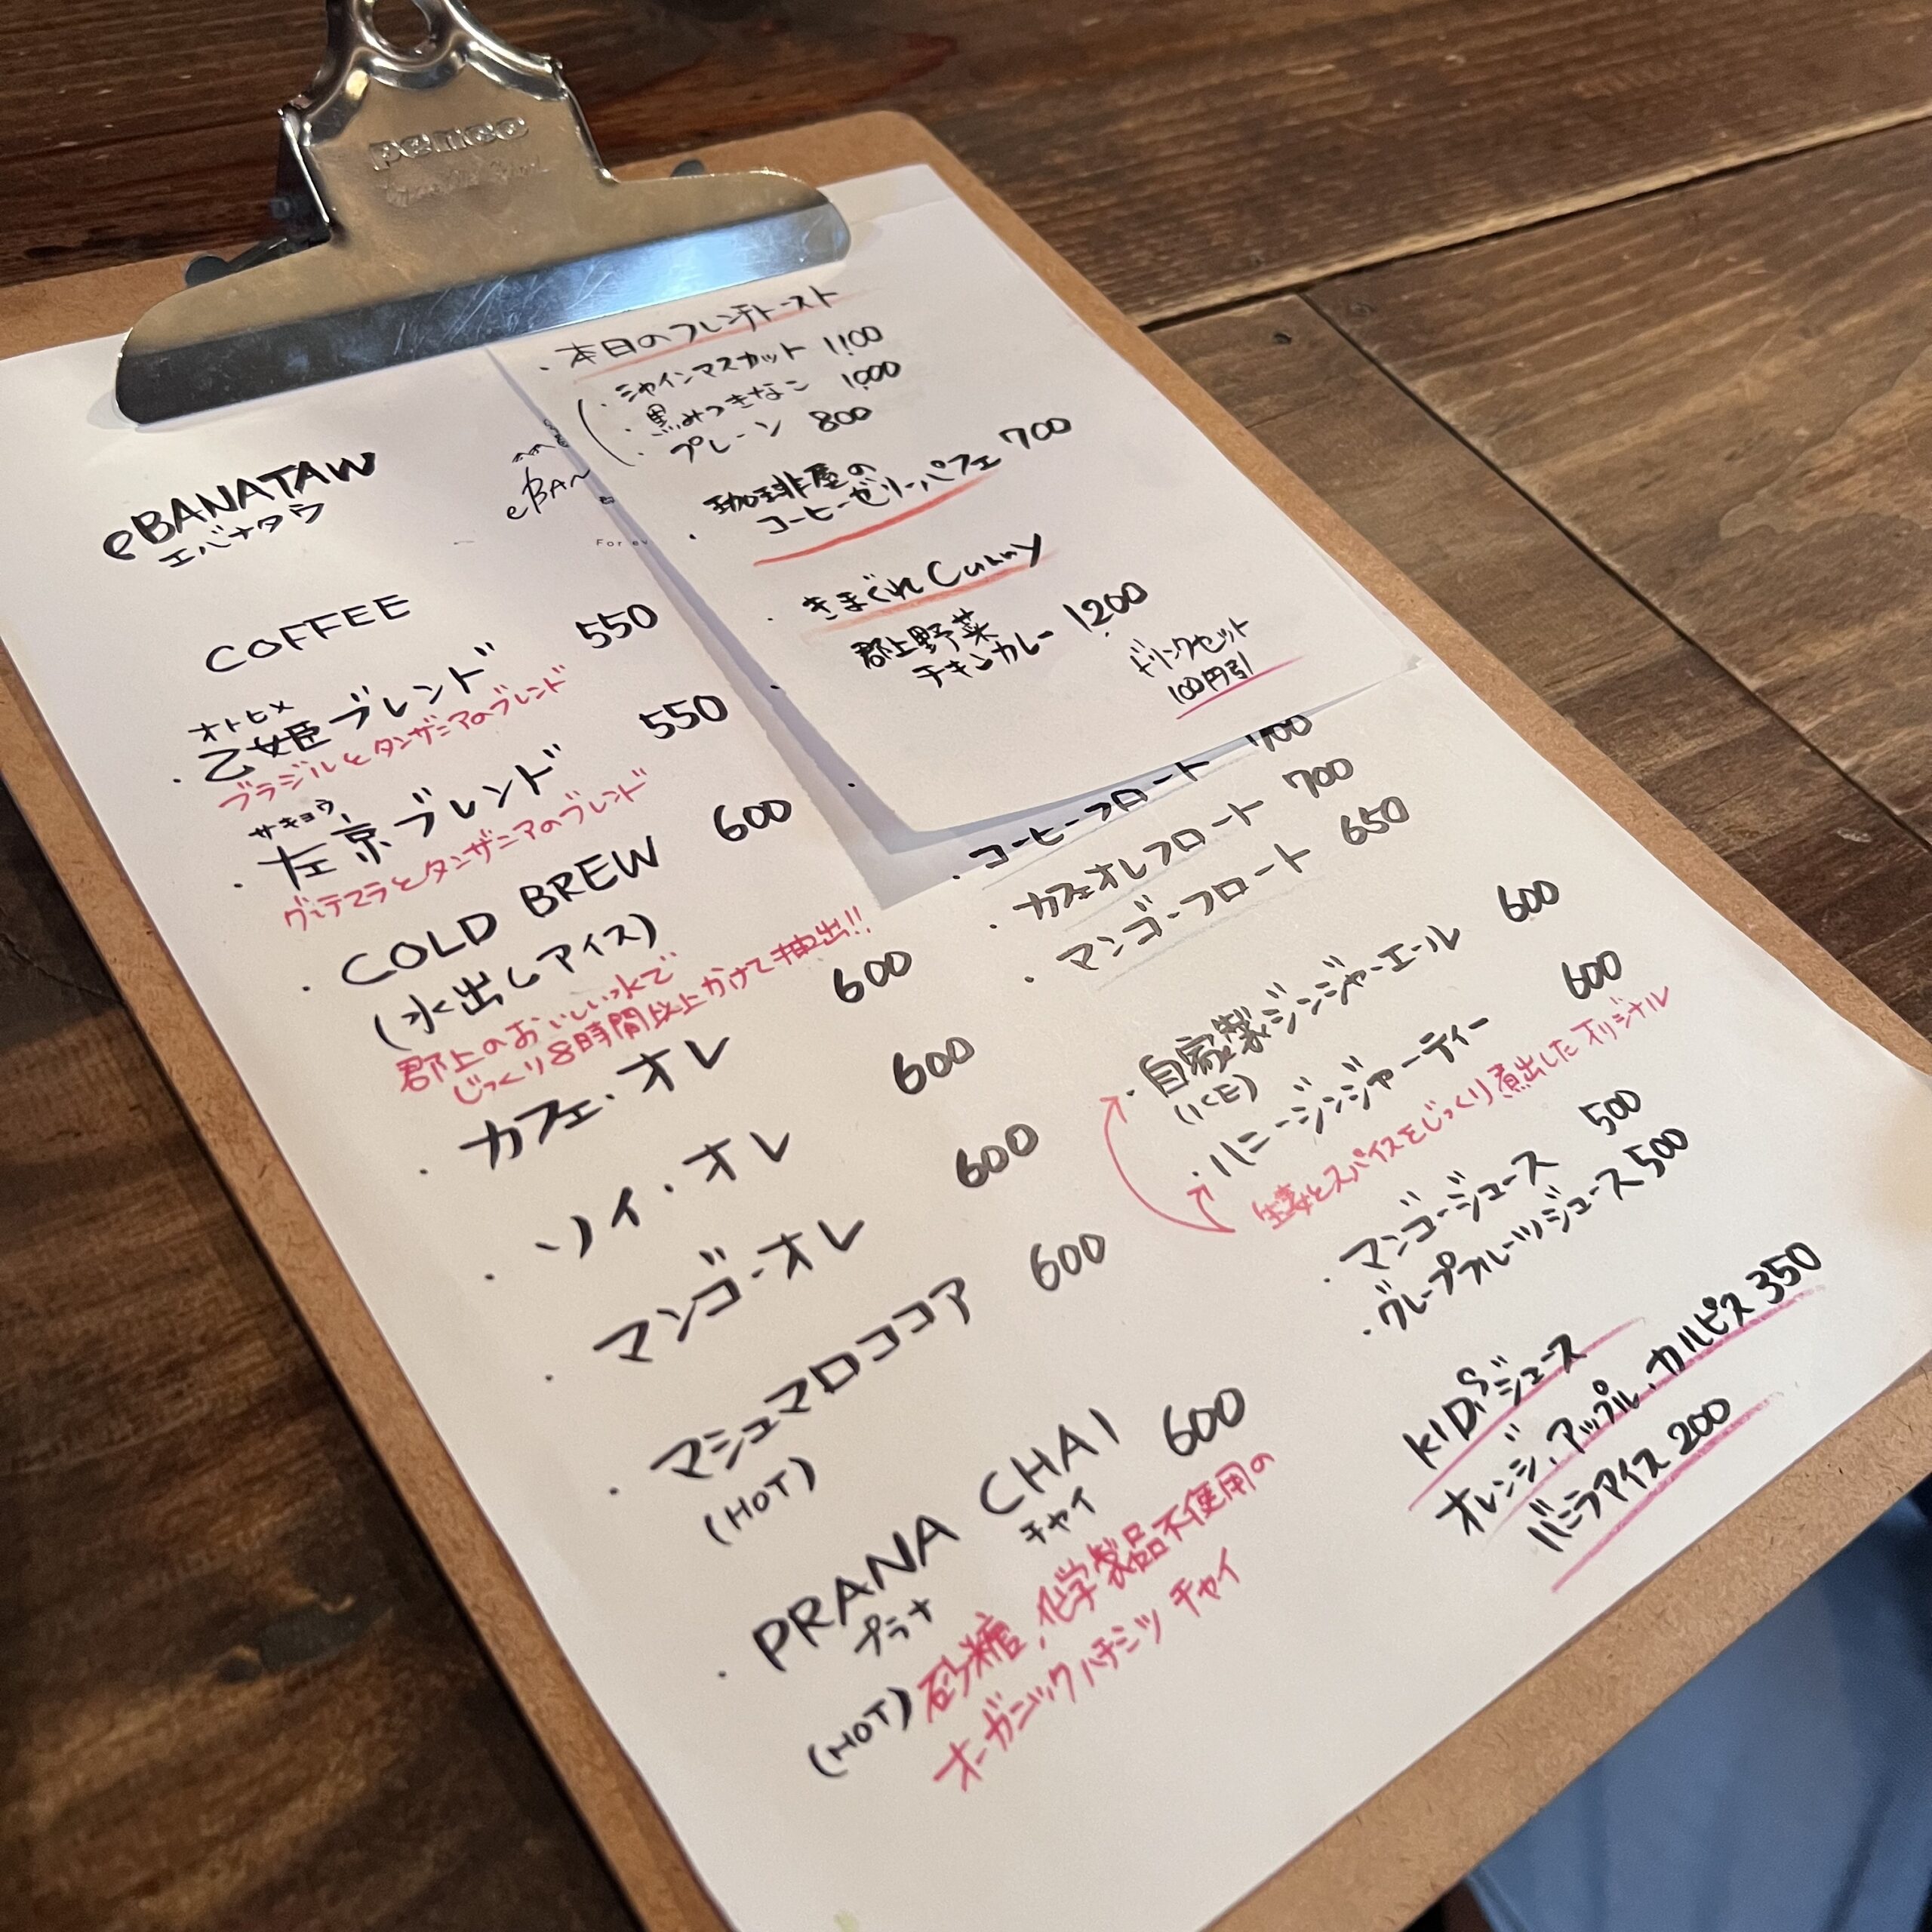 penco
eBANATAW
エバナタウ
eBAN
For ev
COFFEE
オトヒメ
・乙女姫ブレンド 550
ブラジルとタンザニアのブレンド
サキョウ
・左京ブレンド 550
グァテマラとタンザニアのブレンド
・COLD BREW 600
(水出しアイス)
郡上のおいしい水で
じっくり8時間以上かけて抽出!!
・カフェ・オレ 600
・ソイ・オレ 600
・マンゴーオレ 600
・マシュマロココア 600
(HOT)
・PRANA CHAI 600
プラナ チャイ
(HOT) 砂糖、化学製品不使用の
オーガニックハチミツ チャイ
・本日のフレンチトースト
・シャインマスカット 1,100
・黒みつきなこ 1,000
・プレーン 800
・珈琲屋の
コーヒーゼリーパフェ 700
・きまぐれ Curry
・郡上野菜
チキンカレー 1,200
ドリンクセット
100円引
・コーヒーフロート 700
・カフェオレフロート 700
・マンゴーフロート 650
・自家製ジンジャーエール 600
(ICE)
・ハニージンジャーティー 600
生姜とスパイスをじっくり煮出したオリジナル
・マンゴージュース 500
・グレープフルーツジュース 500
KIDSジュース
オレンジ、アップル、カルピス 350
バニラアイス 200